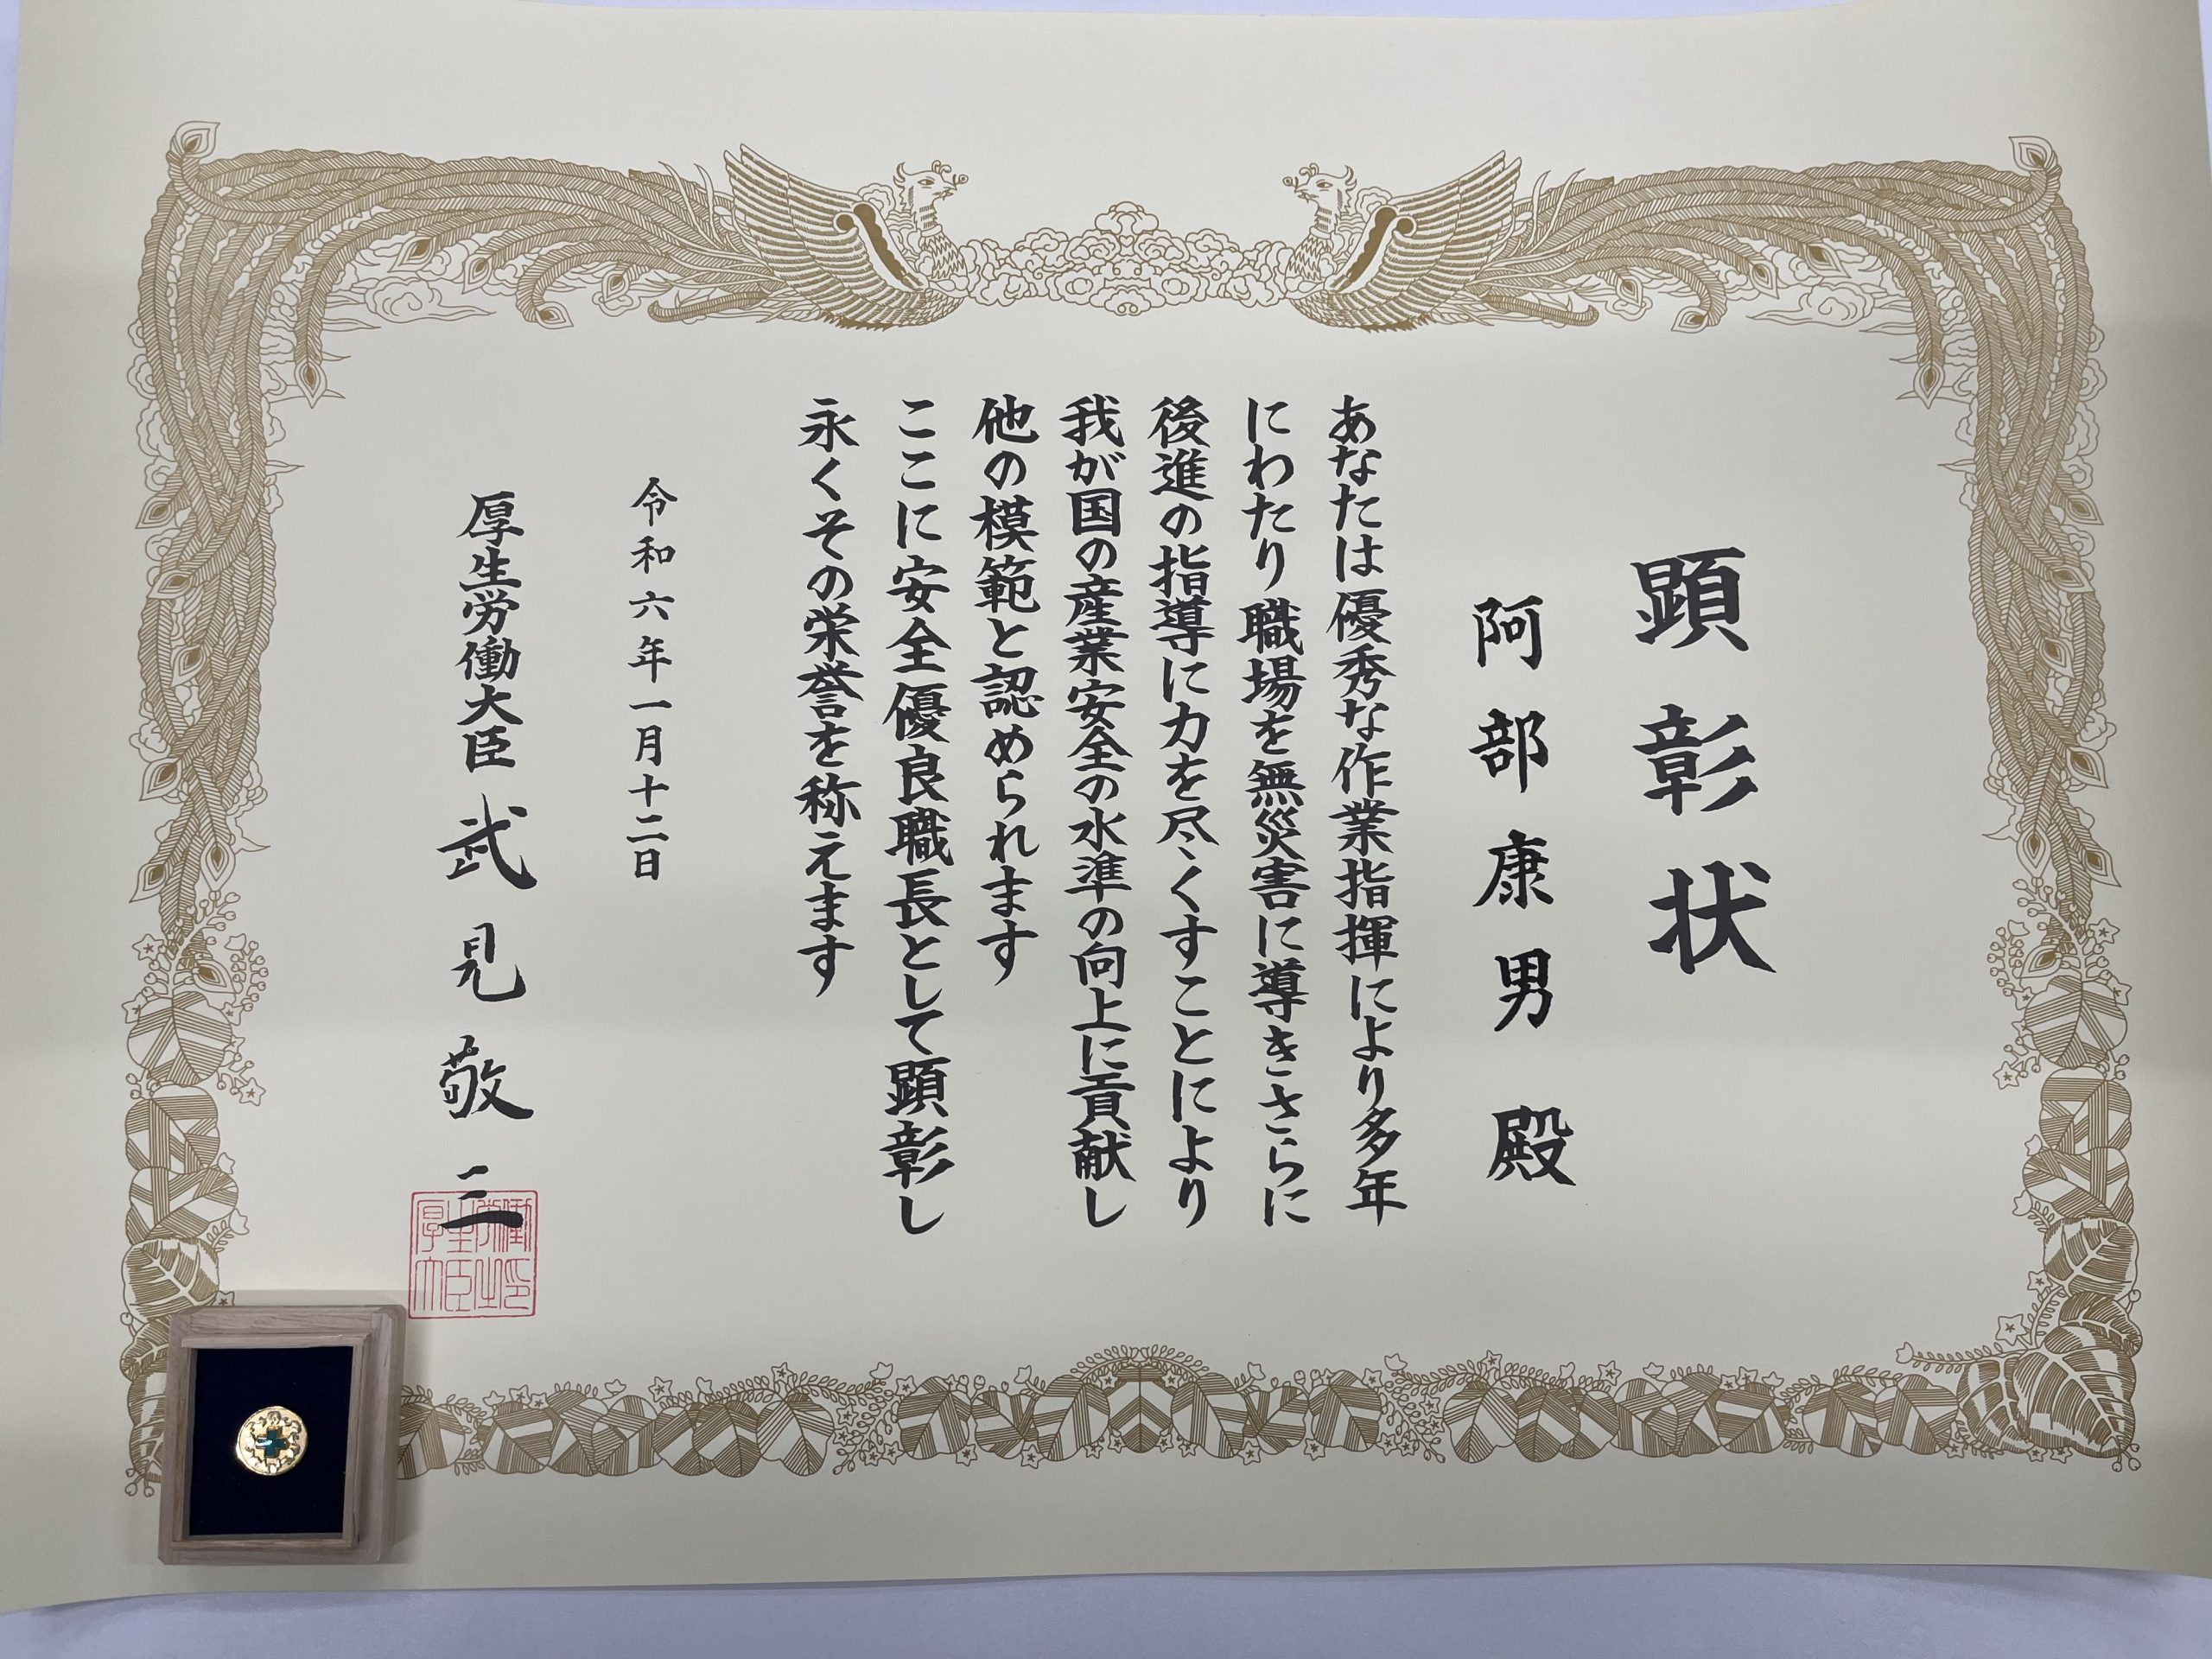 顕彰状
阿部康男 殿
あなたは優秀な作業指揮により多年
にわたり職場を無災害に導きさらに
後進の指導に力を尽くすことにより
我が国の産業安全の水準の向上に貢献し
他の模範と認められます
ここに安全優良職長として顕彰し
永くその栄誉を称えます
令和六年一月十二日
厚生労働大臣 武見敬三
厚生労働
大臣之印